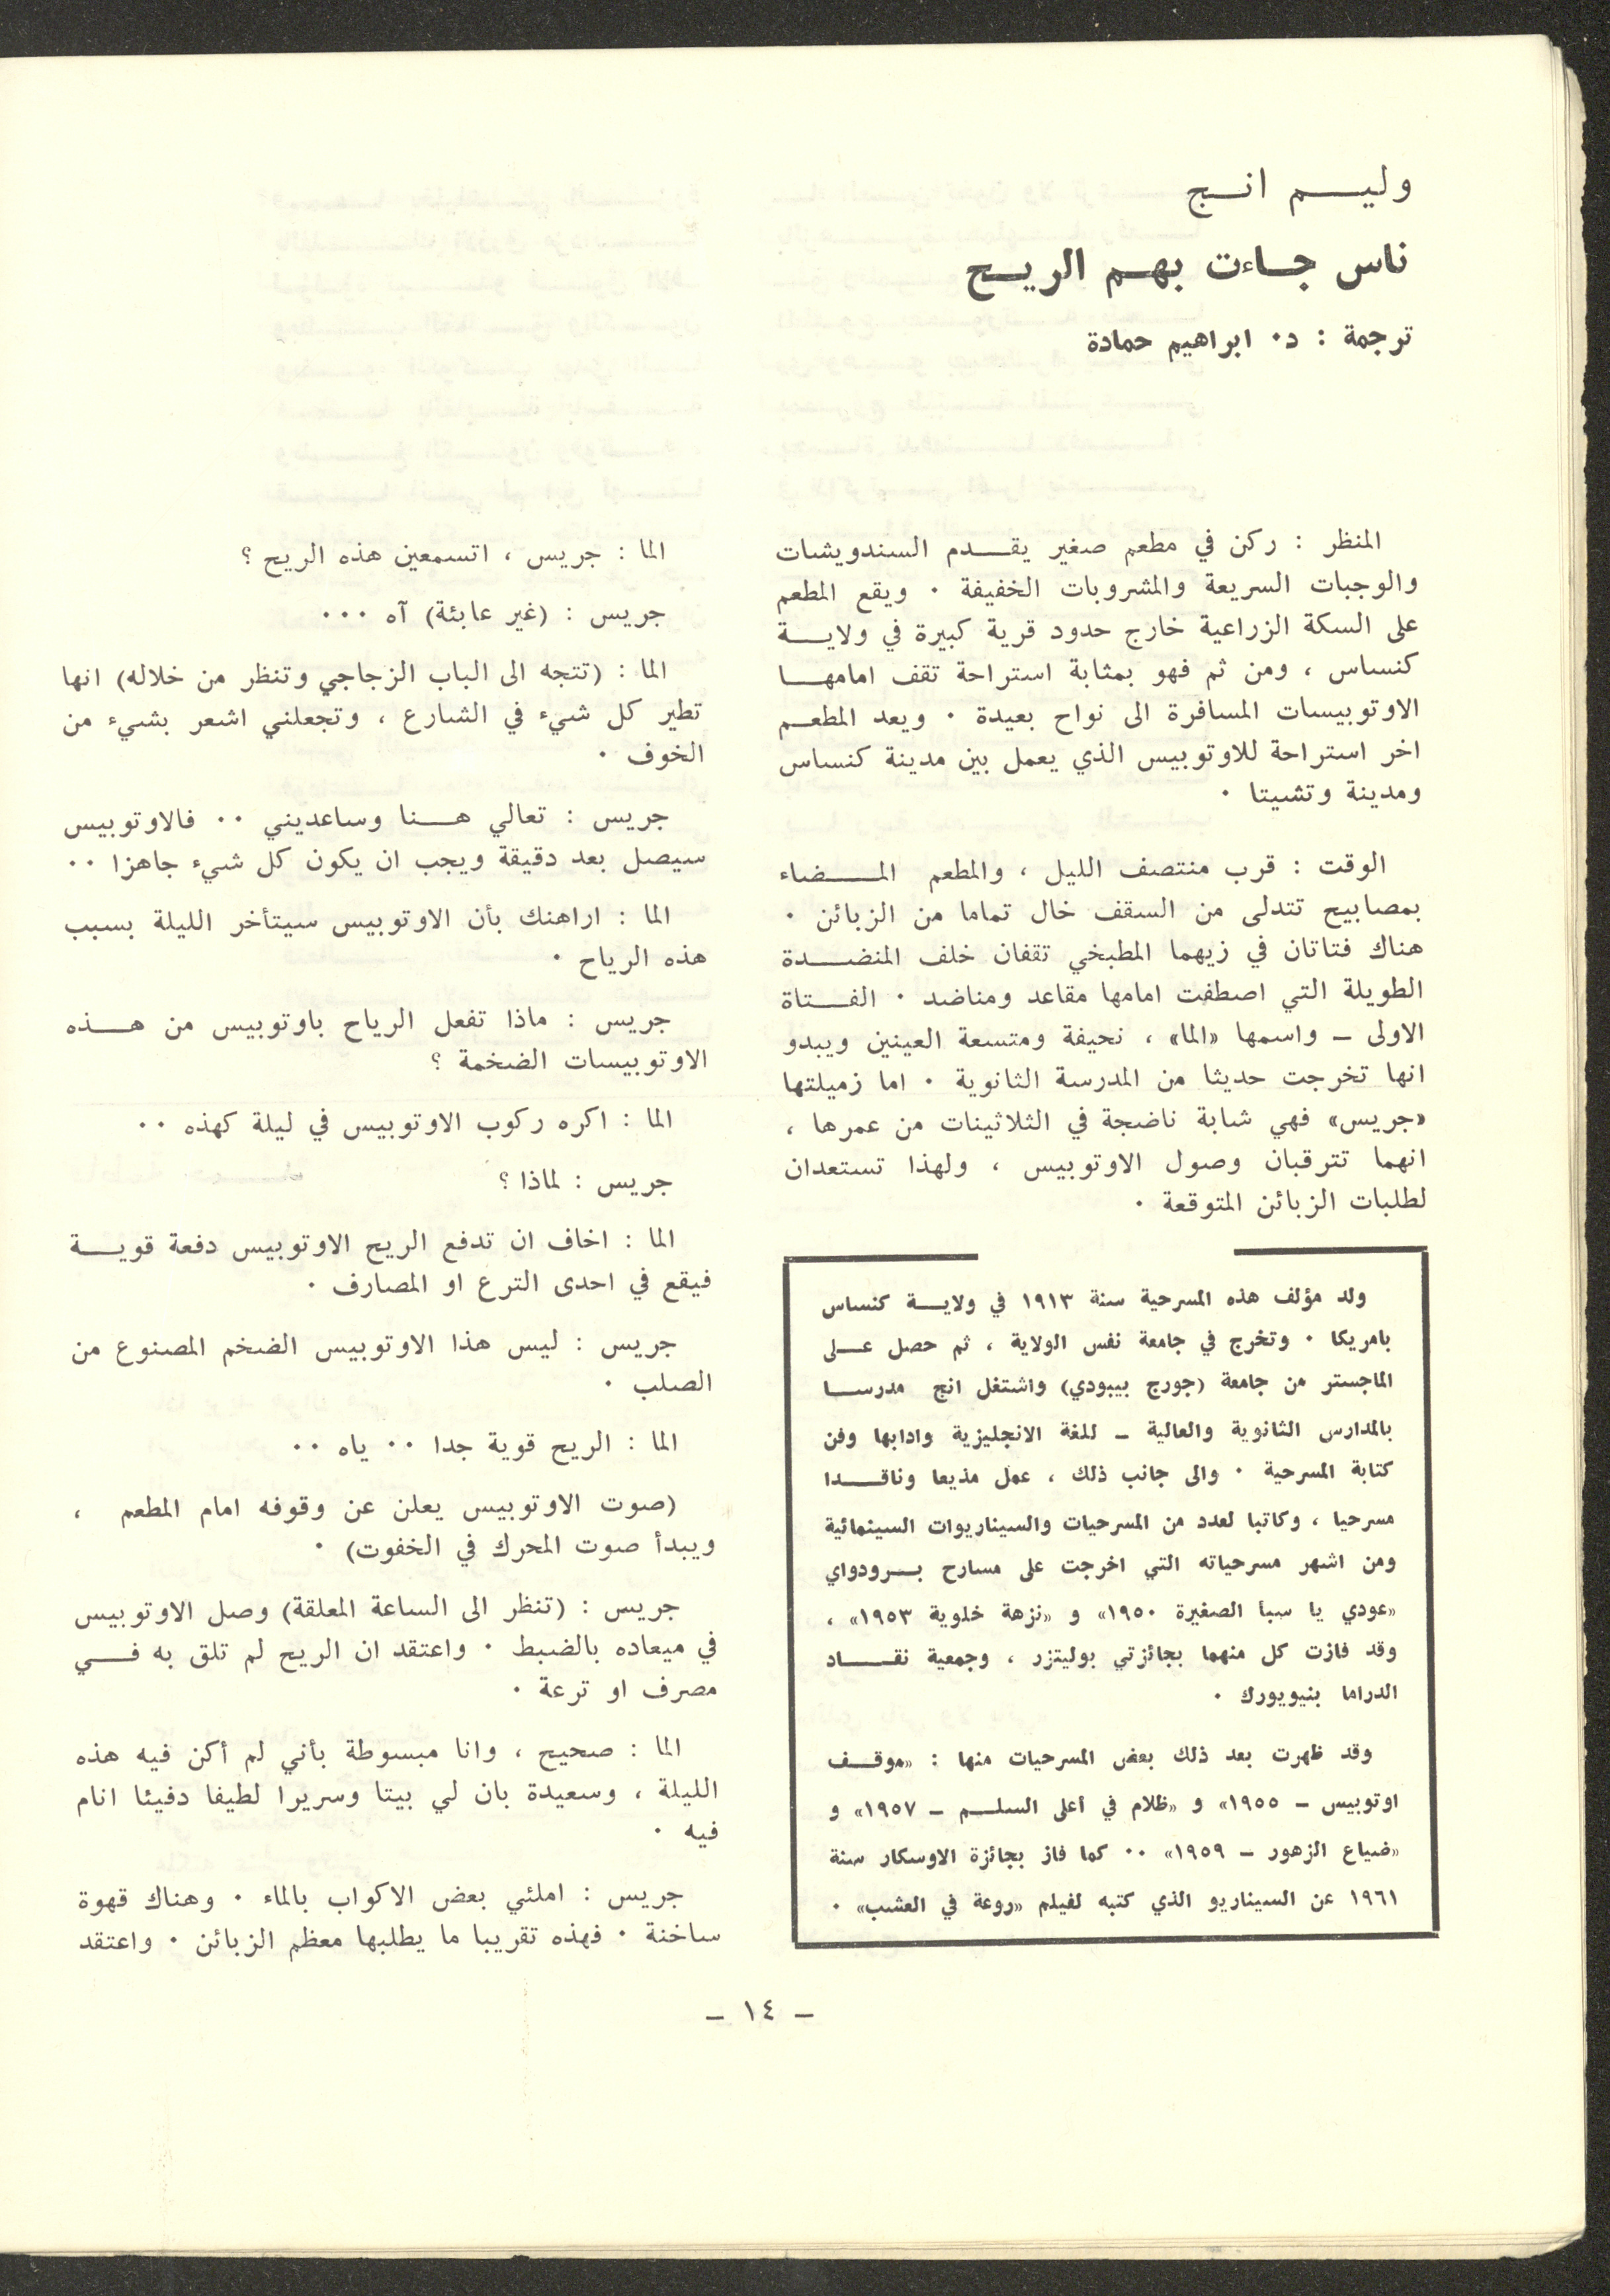 وليــــم انــج
ناس جــاءت بهــم الريــح
ترجمة : د٠ ابراهيم حمادة
المنظر : ركن في مطعم صغير يقـــدم السندويشات
والوجبات السريعة والمشروبات الخفيفة ٠ ويقع المطعم
على السكة الزراعية خارج حدود قرية كبيرة في ولايـــة
كنساس ، ومن ثم فهو بمثابة استراحة تقف امامهـــا
الاوتوبيسات المسافرة الى نواح بعيدة ٠ ويعد المطعــم
اخر استراحة للاوتوبيس الذي يعمل بين مدينة كنساس
ومدينة وتشيتا ٠
الوقت : قرب منتصف الليل ، والمطعم المــــضاء
بمصابيح تتدلى من السقف خال تماما من الزبائن ٠
هناك فتاتان في زيهما المطبخي تقفان خلف المنضــــدة
الطويلة التي اصطفت امامها مقاعد ومناضد ٠ الفـــتاة
الاولى ـ واسمها «الما» ، نحيفة ومتسعة العينين ويبدو
انها تخرجت حديثا من المدرسة الثانوية ٠ اما زميلتها
«جريس» فهي شابة ناضجة في الثلاثينات من عمرها ،
انهما تترقبان وصول الاوتوبيس ، ولهذا تستعدان
لطلبات الزبائن المتوقعة ٠
ولد مؤلف هذه المسرحية سنة ١٩١٣ في ولايـــة كنساس
بامريكا ٠ وتخرج في جامعة نفس الولاية ، ثم حصل عـــلى
الماجستر من جامعة (جورج بيبودي) واشتغل انج مدرســـا
بالمدارس الثانوية والعالية ـ للغة الانجليزية وادابها وفن
كتابة المسرحية ٠ والى جانب ذلك ، عمل مذيعا وناقـــدا
مسرحيا ، وكاتبا لعدد من المسرحيات والسيناريوات السينمائية
ومن اشهر مسرحياته التي اخرجت على مسارح بـــرودواي
«عودي يا سبأ الصغيرة ١٩٥٠» و «نزهة خلوية ١٩٥٣» ،
وقد فازت كل منهما بجائزتي بوليتزر ، وجمعية نقـــاد
الدراما بنيويورك ٠
وقد ظهرت بعد ذلك بعض المسرحيات منها : «موقــف
اوتوبيس ـ ١٩٥٥» و «ظلام في أعلى السلــم ـ ١٩٥٧» و
«ضياع الزهور ـ ١٩٥٩» ٠٠ كما فاز بجائزة الاوسكار سنة
١٩٦١ عن السيناريو الذي كتبه لفيلم «روعة في العشب» ٠
الما : جريس ، اتسمعين هذه الريح ؟
جريس : (غير عابئة) آه ٠٠٠
الما : (تتجه الى الباب الزجاجي وتنظر من خلاله) انها
تطير كل شيء في الشارع ، وتجعلني اشعر بشيء من
الخوف ٠
جريس : تعالي هـــنا وساعديني ٠٠ فالاوتوبيس
سيصل بعد دقيقة ويجب ان يكون كل شيء جاهزا ٠٠
الما : اراهنك بأن الاوتوبيس سيتأخر الليلة بسبب
هذه الرياح ٠
جريس : ماذا تفعل الرياح باوتوبيس من هـــذه
الاوتوبيسات الضخمة ؟
الما : اكره ركوب الاوتوبيس في ليلة كهذه ٠٠
جريس : لماذا ؟
الما : اخاف ان تدفع الريح الاوتوبيس دفعة قويـــة
فيقع في احدى الترع او المصارف ٠
جريس : ليس هذا الاوتوبيس الضخم المصنوع من
الصلب ٠
الما : الريح قوية جدا ٠٠ ياه ٠٠
(صوت الاوتوبيس يعلن عن وقوفه امام المطعم ،
ويبدأ صوت المحرك في الخفوت) ٠
جريس : (تنظر الى الساعة المعلقة) وصل الاوتوبيس
في ميعاده بالضبط ٠ واعتقد ان الريح لم تلق به فـــي
مصرف او ترعة ٠
الما : صحيح ، وانا مبسوطة بأني لم أكن فيه هذه
الليلة ، وسعيدة بان لي بيتا وسريرا لطيفا دفيئا انام
فيه ٠
جريس : املئي بعض الاكواب بالماء ٠ وهناك قهوة
ساخنة ٠ فهذه تقريبا ما يطلبها معظم الزبائن ٠ واعتقد
ـ ١٤ ـ